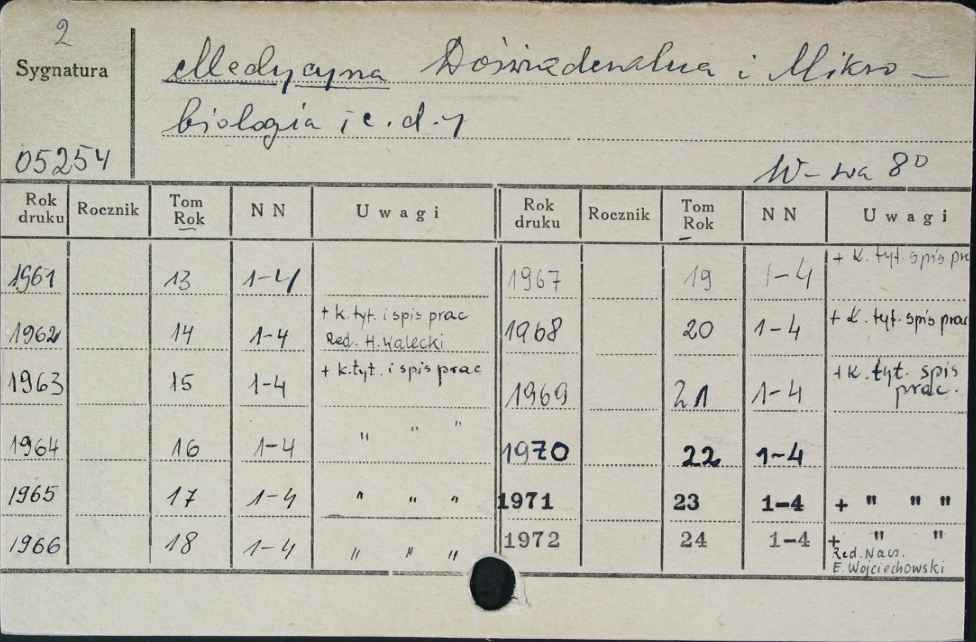 2
Sygnatura
05254
Medycyna Doświadczalna i Mikro-
biologia /c.d./
W-wa 8°
Rok druku Rocznik Tom Rok N N Uwagi Rok druku Rocznik Tom Rok N N Uwagi
1961 13 1-4 1967 19 1-4 + k. tyt. spis pr
1962 14 1-4 + k. tyt. i spis prac 1968 20 1-4 + k. tyt. spis prac
Red. H.
1963 15 1-4 + k. tyt. i spis prac 1969 21 1-4 + k. tyt. spis
prac.
1964 16 1-4 " " " 1970 22 1-4
1965 17 1-4 " " " 1971 23 1-4 + " " "
1966 18 1-4 " " " 1972 24 1-4 + " "
Red. Nacz.
E. Wojciechowski